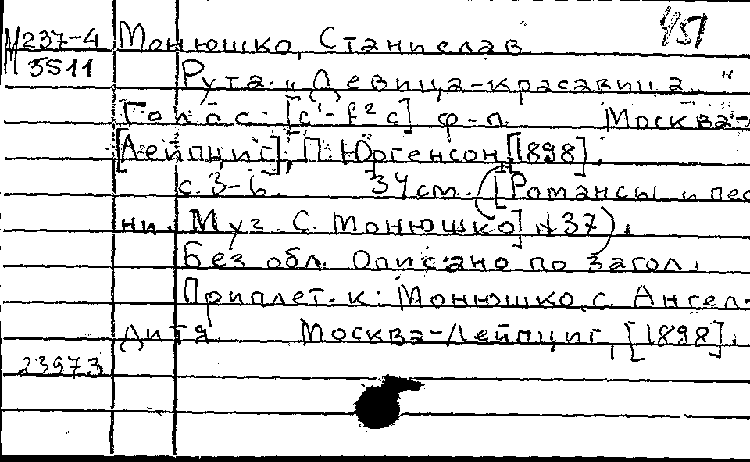 М 237-4 Монюшко, Станислав 451
3511 Рута. "Девица-красавица. "
Голос [c¹-f² c] ф-п. Москва-
[Лейпциг], П. Юргенсон [1898].
с. 3-6. 34 см. ([Романсы и пес
ни. Муз. С. Монюшко] № 37).
Без обл. Описано по загол.
Приплет. к: Монюшко, С. Ангел-
дитя. Москва-Лейпциг, [1898].
23973